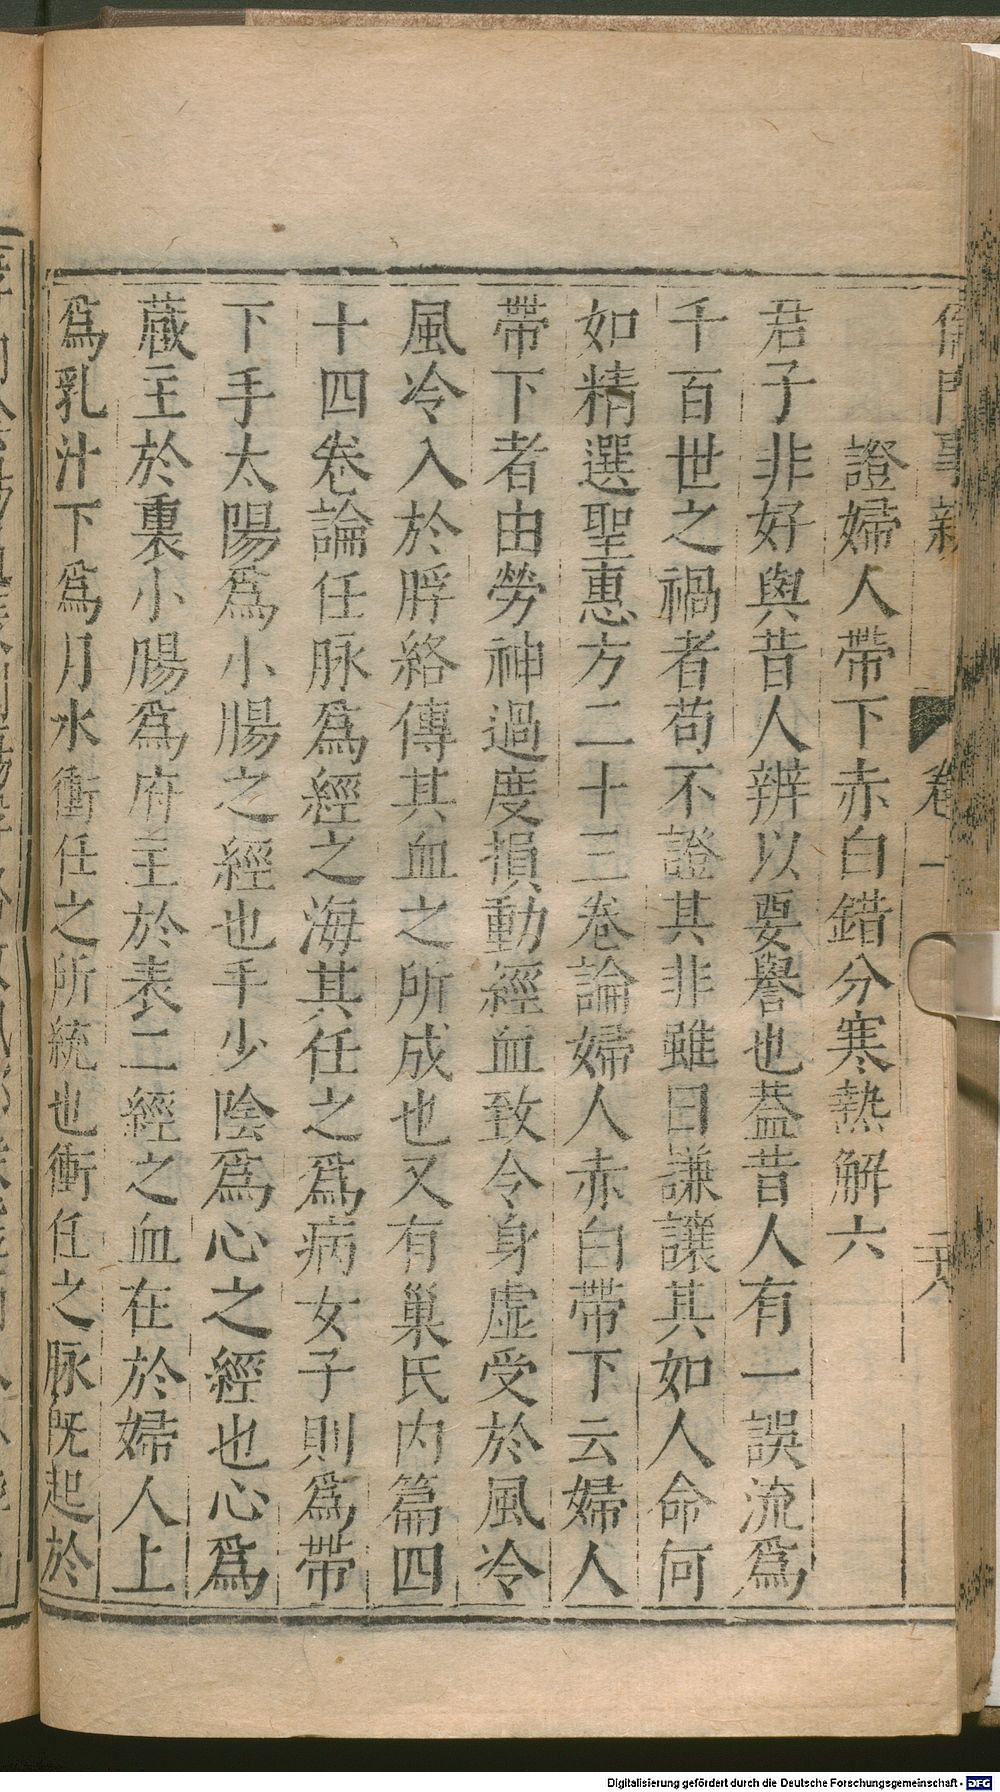 儒門事親 卷一 二十八
證婦人帶下赤白錯分寒熱解六
君子非好與昔人辨以要譽也葢昔人有一誤流爲
千百世之禍者苟不證其非雖曰謙讓其如人命何
如精選聖惠方二十三卷論婦人赤白帶下云婦人
帶下者由勞神過度損動經血致令身虛受於風冷
風冷入於脬絡傳其血之所成也又有巢氏内篇四
十四卷論任脉爲經之海其任之爲病女子則爲帶
下手太陽爲小腸之經也手少陰爲心之經也心爲
藏主於裏小腸爲府主於表二經之血在於婦人上
爲乳汁下爲月水衝任之所統也衝任之脉既起於
Digitalisierung gefördert durch die Deutsche Forschungsgemeinschaft - DFG